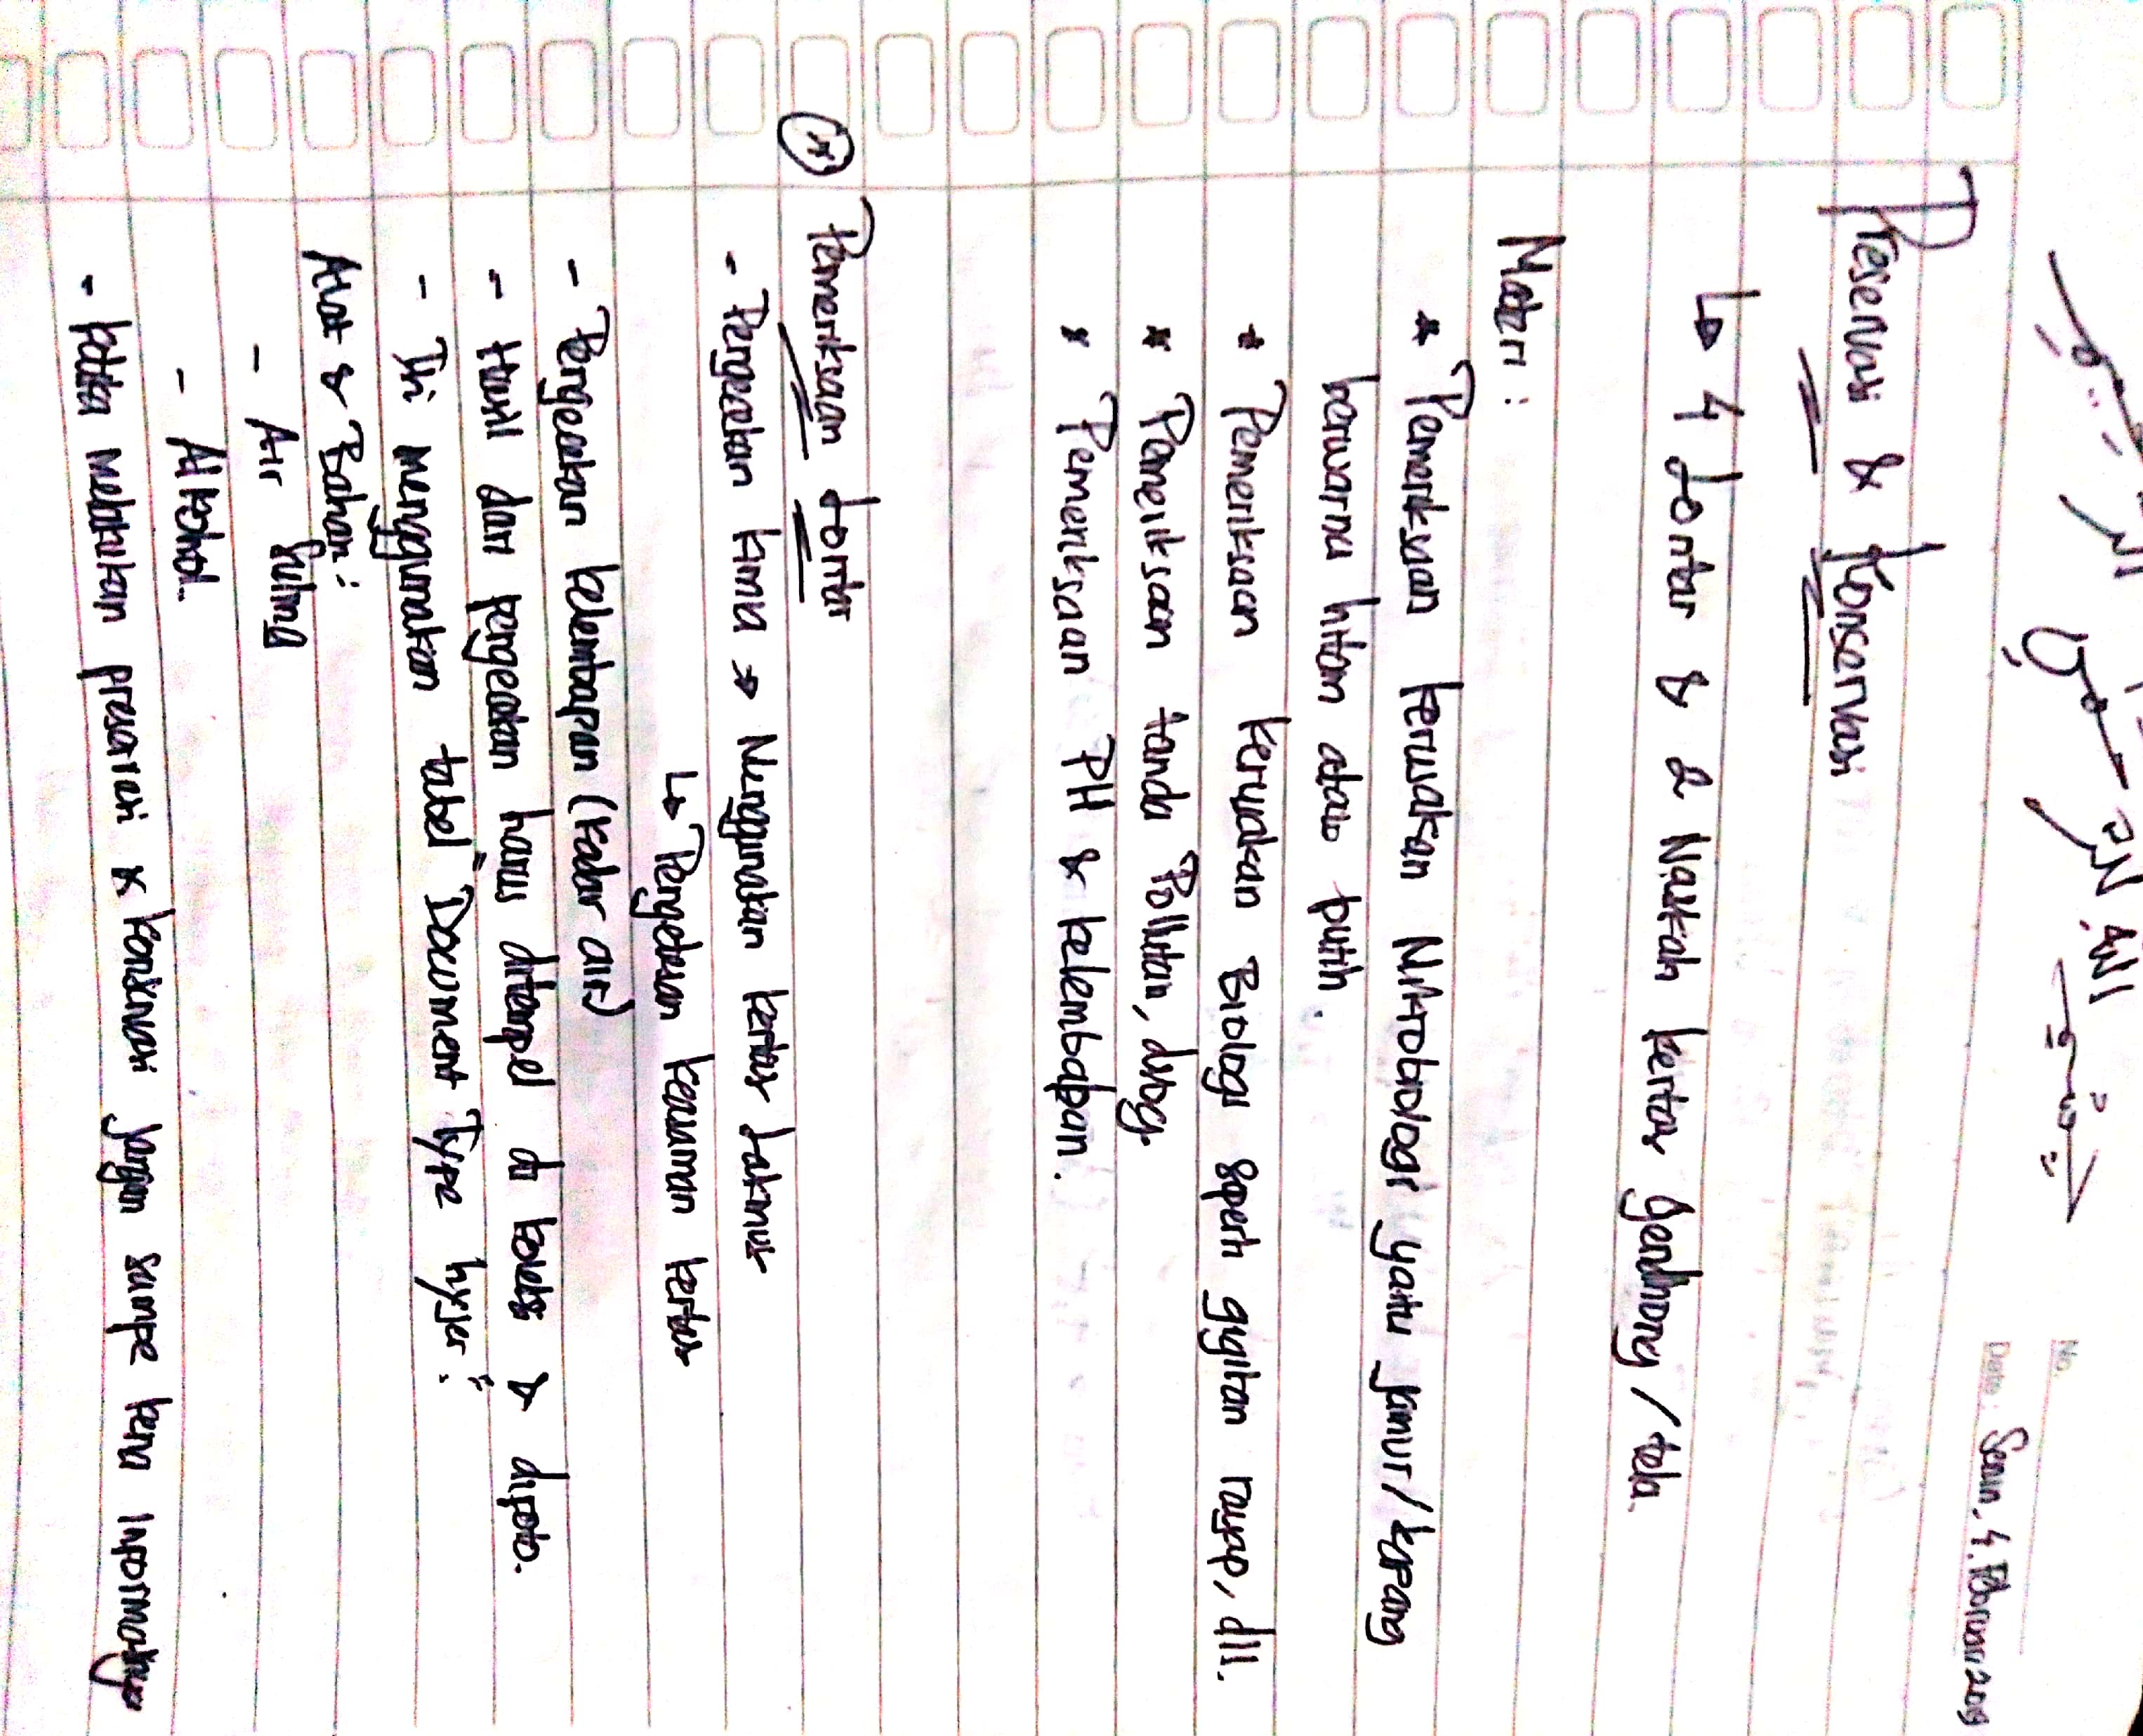 بسم الله الرحمن الرحيم
No.
Date: Senin, 4 Februari 2019
Preservasi & Konservasi
↳ 4 Lontar & 2 Naskah kertas gendhong / tela.
Materi :
* Pemeriksaan kerusakan Mikrobiologi yaitu jamur/kapang
berwarna hitam atau putih.
* Pemeriksaan kerusakan Biologi seperti gigitan rayap, dll.
* Pemeriksaan tanda Pollutan, dsbg.
* Pemeriksaan PH & kelembapan.
Pemeriksaan Lontar
- Pengecekan kimia → Menggunakan kertas Lakmus
↳ Pengetesan keasaman kertas
- Pengecekan kelembapan (kadar air)
- Hasil dari pengecekan harus ditempel di & dipoto.
- Tri menggunakan tabel "Document Type hyjer."
Alat & Bahan :
- Air Suling
- Alkohol.
- Ketika melakukan preservasi & konservasi jangan sampe kena informasinya